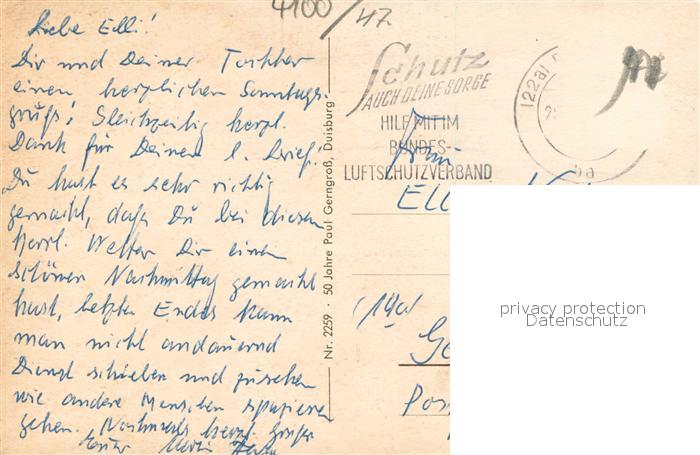 4100/47
Liebe Elli!
Dir und Deiner Tochter
einen herzlichen Sonntags-
gruß! Gleichzeitig herzl.
Dank für Deinen l. Brief!
Du hast es sehr richtig
gemacht, daß Du bei diesem
herrl. Wetter Dir einen
schönen Nachmittag gemacht
hast, letzten Endes kann
man nicht andauernd
Dienst schieben und zusehen
wie andere Menschen spazieren
gehen. Nochmals herzl. Grüße
Nr. 2259 · 50 Jahre Paul Gerngroß, Duisburg
Schutz
AUCH DEINE SORGE
HILF MIT IM
BUNDES-
LUFTSCHUTZVERBAND
(22a)
ba
Frau
privacy protection
Datenschutz